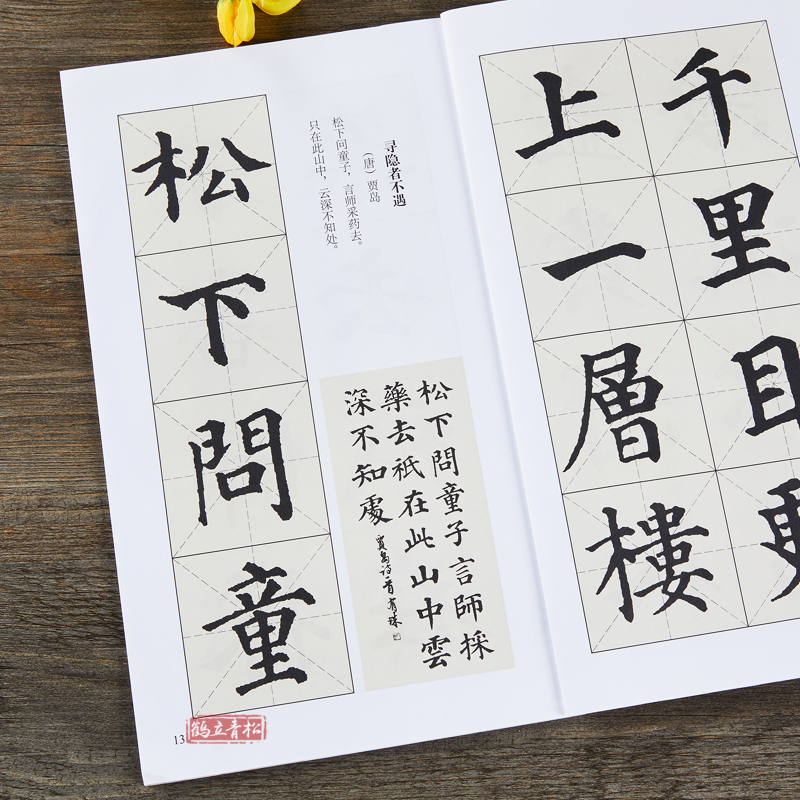 松下問童
寻隐者不遇
（唐）贾岛
松下问童子，言师采药去。
只在此山中，云深不知处。
松下問童子言師採
藥去祇在此山中雲
深不知處
賈島詩
13
鹤立青松
千里目更
上一層樓